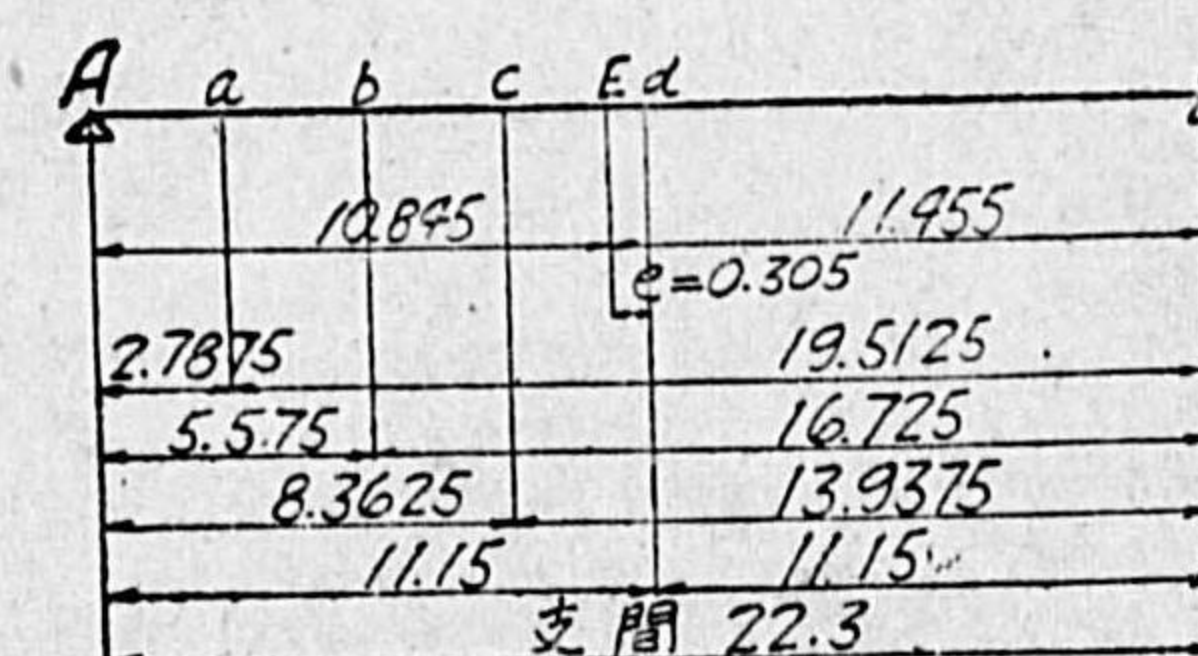 A a b c E d
10.845 11.455
e=0.305
2.7875 19.5125
5.575 16.725
8.3625 13.9375
11.15 11.15
支間 22.3